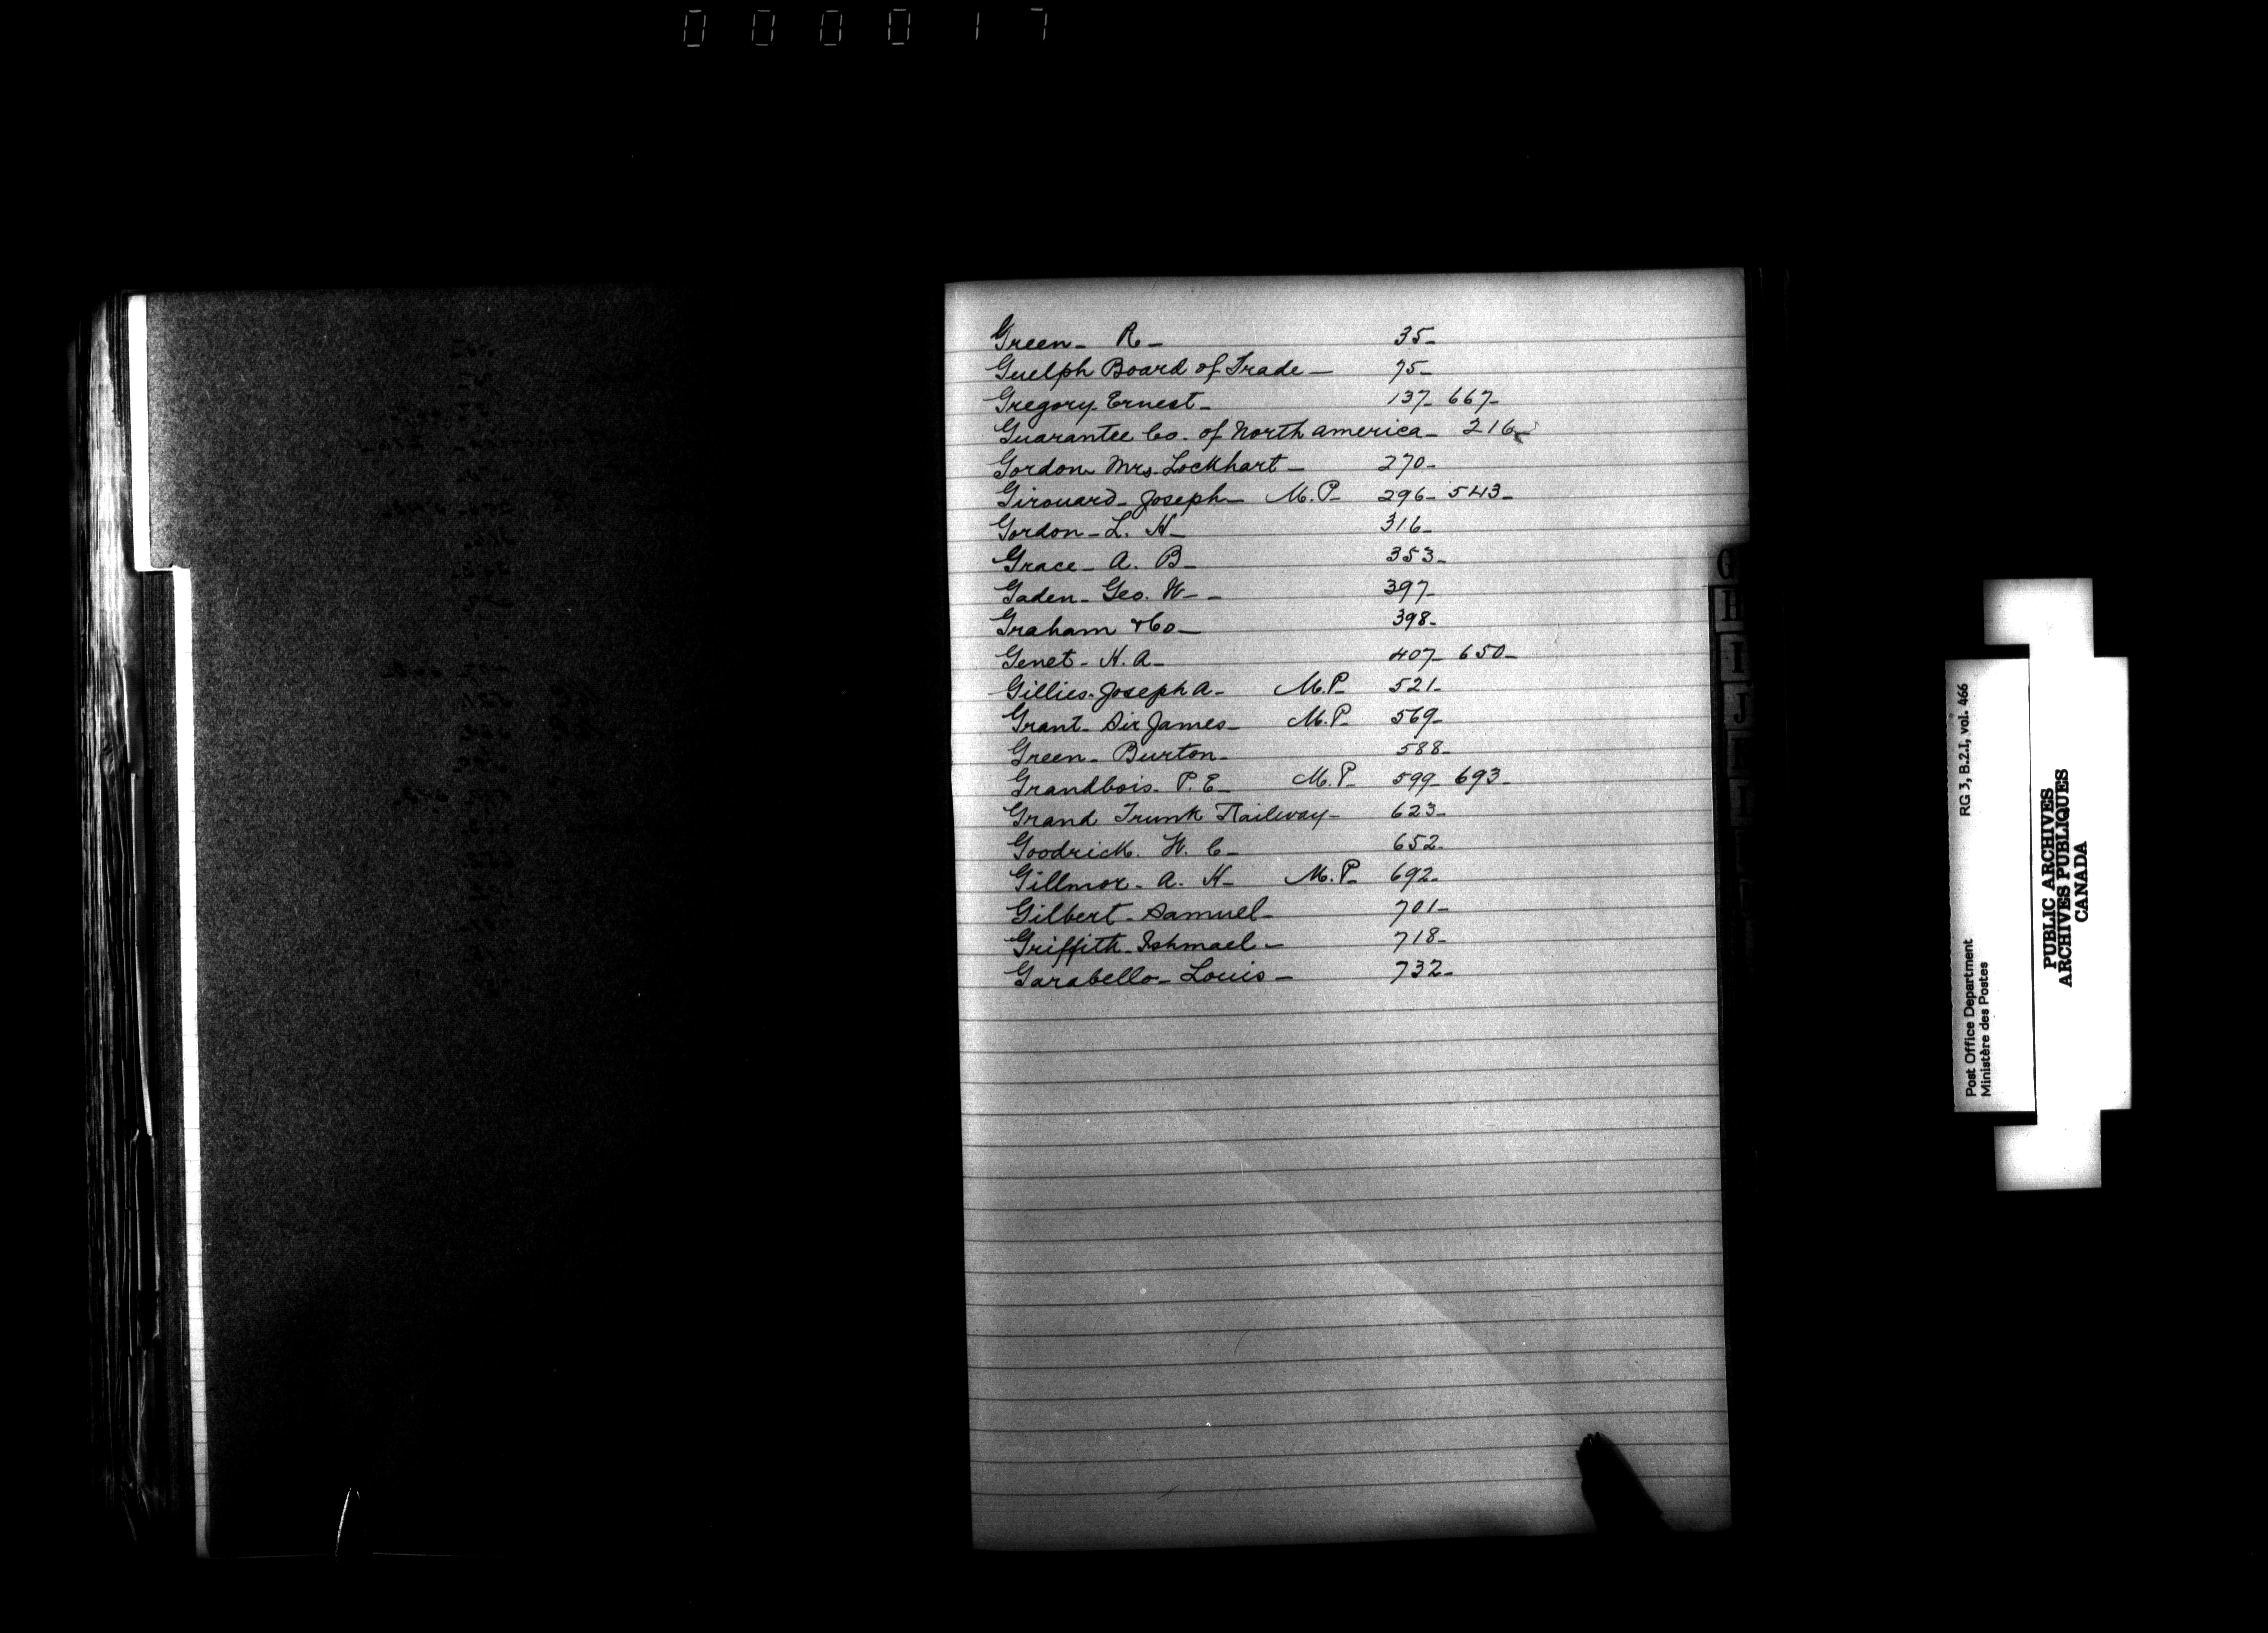 000017
Green - R - 35 -
Guelph Board of Trade - 75 -
Gregory - Ernest - 137 - 667 -
Guarantee Co. of North america - 216 -
Gordon Mrs. Lockhart - 270 -
Girouard - Joseph - M.P. 296 - 543 -
Gordon - L. H - 316 -
Grace - A. B - 353 -
Gaden - Geo. W - - 397 -
Graham & Co - 398 -
Genet - H. A - 407 - 650 -
Gillies - Joseph A - M.P. 521 -
Grant - Sir James - M.P. 569 -
Green - Burton - 588 -
Grandbois - P. E - M.P. 599 - 693 -
Grand Trunk Railway - 623 -
Goodrick. W. C - 652 -
Gillmor - A. H - M.P. 692 -
Gilbert - Samuel - 701 -
Griffith - Ishmael - 718 -
Garabello - Louis - 732 -
G
H
I
J
Post Office Department RG 3, B.2.I, vol. 466
Ministère des Postes
PUBLIC ARCHIVES
ARCHIVES PUBLIQUES
CANADA